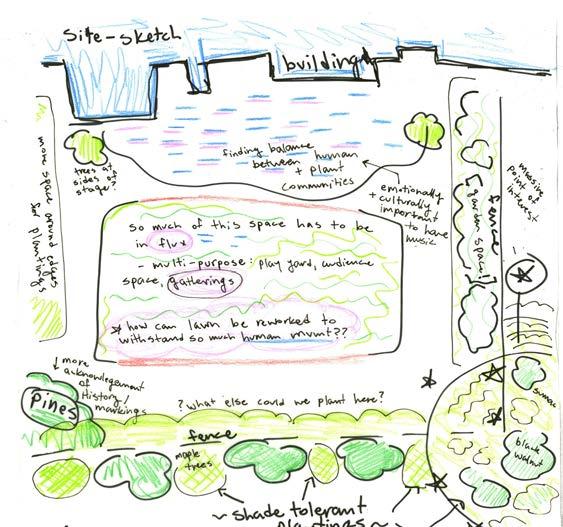 Site-sketch
building
finding balance
between human
+ plant
communities
trees at
sides of
stage!
emotionally
+ culturally
important
to have
music
more space around edges
for plantings
fence
garden space!
massive
point of
interest
so much of this space has to be
in flux
- multi-purpose: play yard, audience
space, gatherings
* how can lawn be reworked to
withstand so much human mvmt??
↓ more
acknowledgement
of
History/
markings
Pines
? what else could we plant here?
fence
maple
trees
sumac
black
walnut
~ shade tolerant
plantings ~